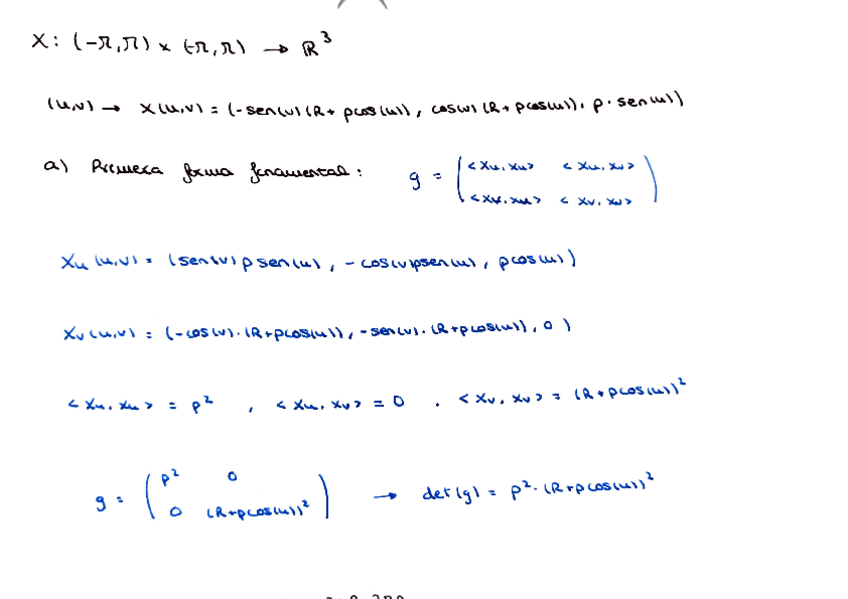 X: (-π,π) × (-π,π) → ℝ³
(u,v) → X(u,v) = (-sen(v)(R+ρcos(u)), cos(v)(R+ρcos(u)), ρ·sen(u))
a) Primera forma fundamental: g = ( <Xu,Xu> <Xu,Xv>
<Xv,Xu> <Xv,Xv> )
Xu(u,v) = (sen(v)ρsen(u), -cos(v)ρsen(u), ρcos(u))
Xv(u,v) = (-cos(v)·(R+ρcos(u)), -sen(v)·(R+ρcos(u)), 0)
<Xu,Xu> = ρ² , <Xu,Xv> = 0 , <Xv,Xv> = (R+ρcos(u))²
g = ( ρ² 0
0 (R+ρcos(u))² ) → det(g) = ρ²·(R+ρcos(u))²